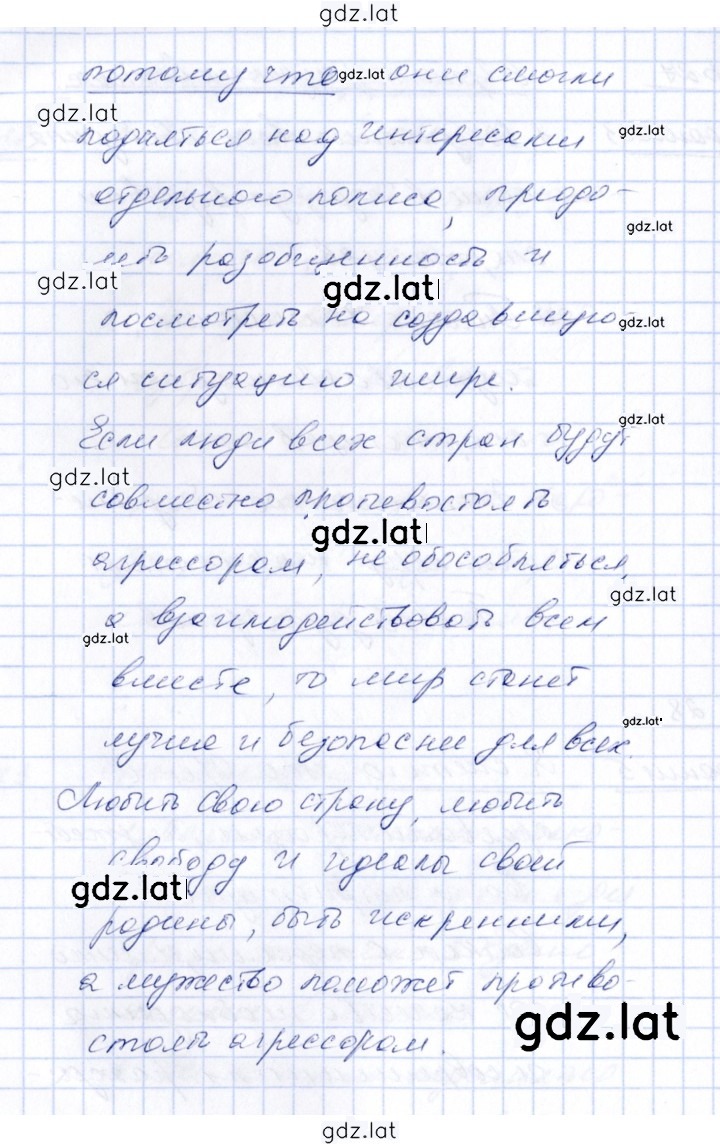 gdz.lat
потому что gdz.lat они смогли
gdz.lat
подняться над интересами gdz.lat
отдельного полиса, преодо-
gdz.lat
леть разобщенность и
gdz.lat gdz.lat
посмотреть на создавшую- gdz.lat
ся ситуацию шире.
gdz.lat
Если люди всех стран будут
gdz.lat
совместно противостоять
gdz.lat
агрессорам, не обособляться,
gdz.lat
а взаимодействовать всем
gdz.lat
вместе, то мир станет
gdz.lat
лучше и безопаснее для всех.
Любить свою страну, любить
свободу и идеалы своей
gdz.lat
родины, быть искренними,
а мужество поможет противо-
gdz.lat
стоять агрессорам.
gdz.lat